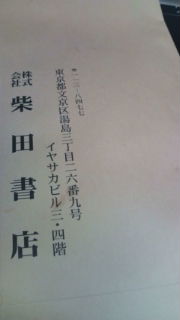 〒一一三-八四七七
東京都文京区湯島三丁目二六番九号
イヤサカビル三・四階
株式会社 柴田書店